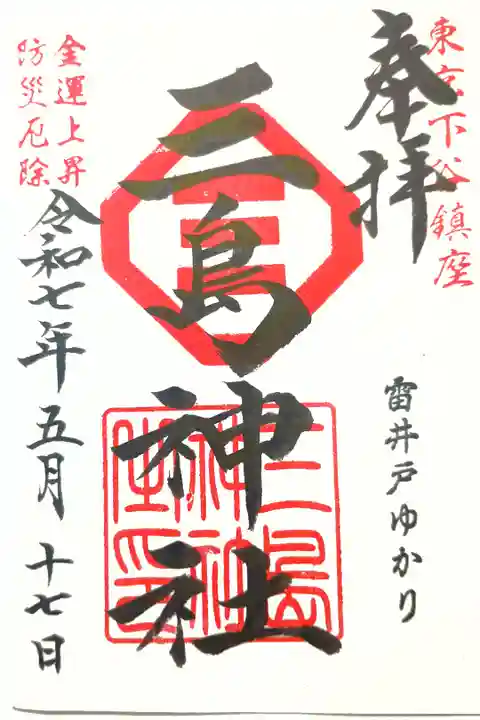 東京下谷鎮座
奉拝
雷井戸ゆかり
三島神社
三島
神社
之印
金運上昇
防災厄除
令和七年五月十七日